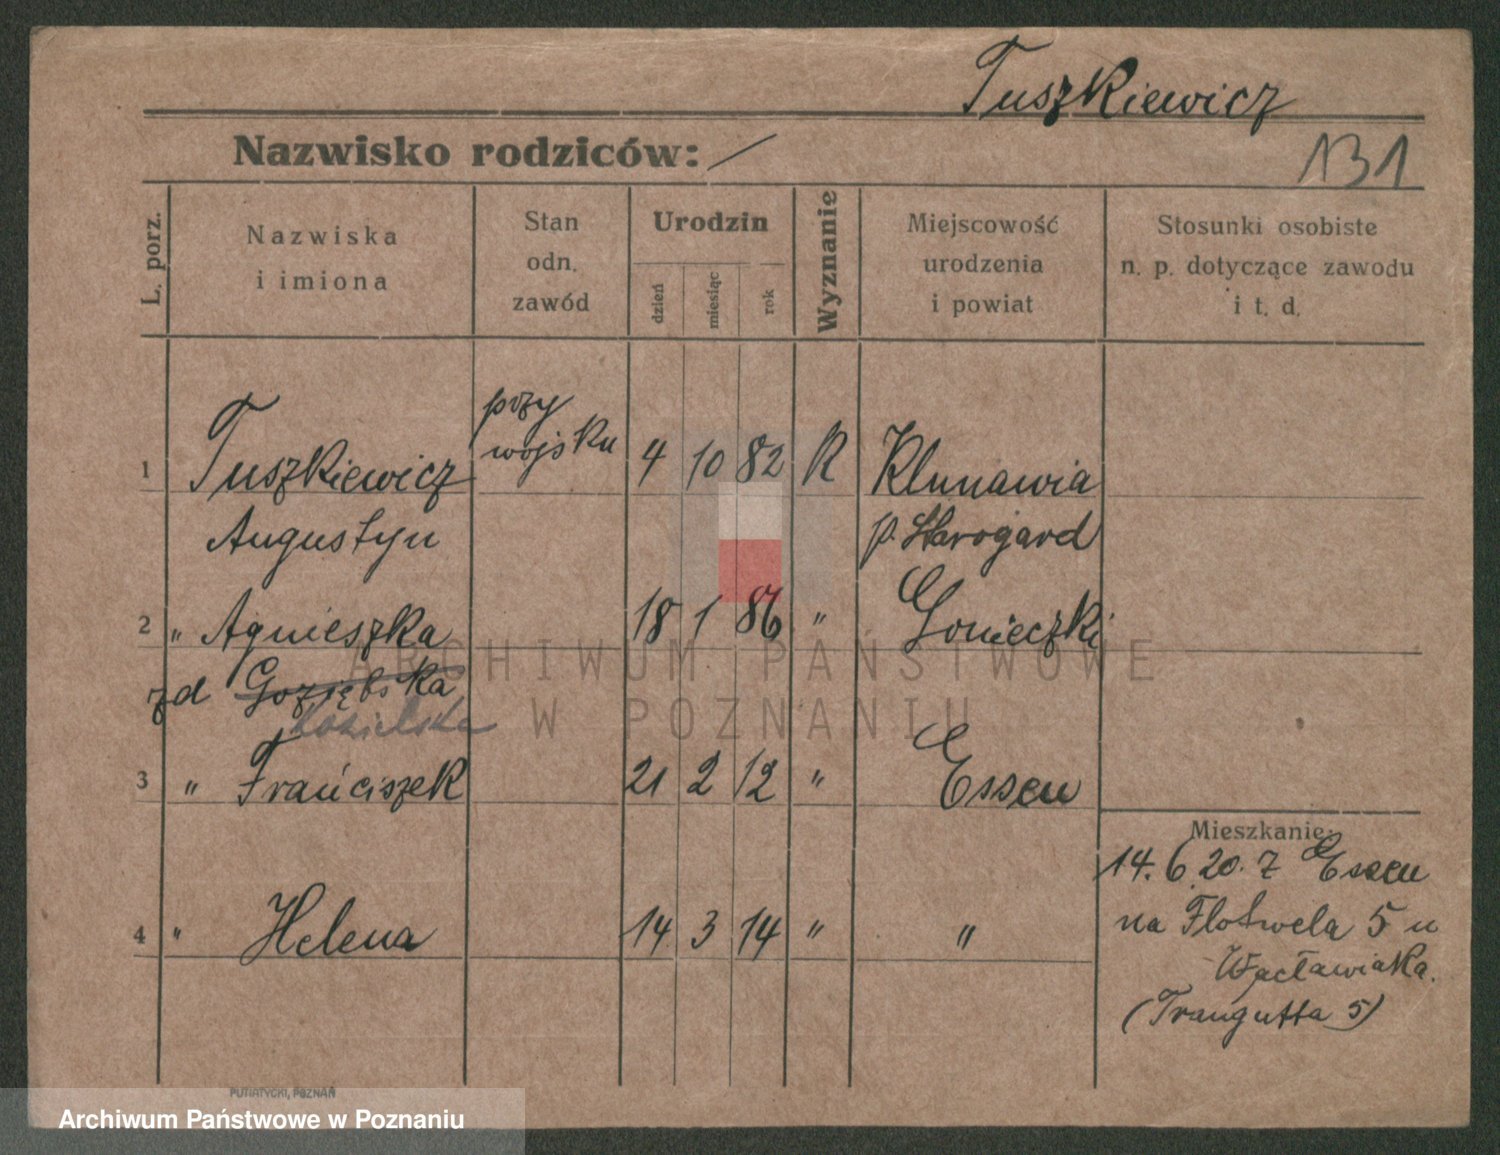 Tuszkiewicz
Nazwisko rodziców: /
131
L. porz.
Nazwiska
i imiona
Stan
odn.
zawód
Urodzin
dzień
miesiąc
rok
Wyznanie
Miejscowość
urodzenia
i powiat
Stosunki osobiste
n. p. dotyczące zawodu
i t. d.
przy
wojsku
1 Tuszkiewicz 4 10 82 R Klunawia
Augustyn p. Starogard
2 " Agnieszka 18 1 86 " Gonieczki
zd Goziębska
Kozielska
3 " Frańciszek 21 2 12 " Essen
Mieszkanie:
14. 6. 20. z Essen
4 " Helena 14 3 14 " "
na Flotwela 5 u
Wacławiaka.
(Traugutta 5)
PUTIATYCKI, POZNAŃ
ARCHIWUM PAŃSTWOWE
W POZNANIU
Archiwum Państwowe w Poznaniu